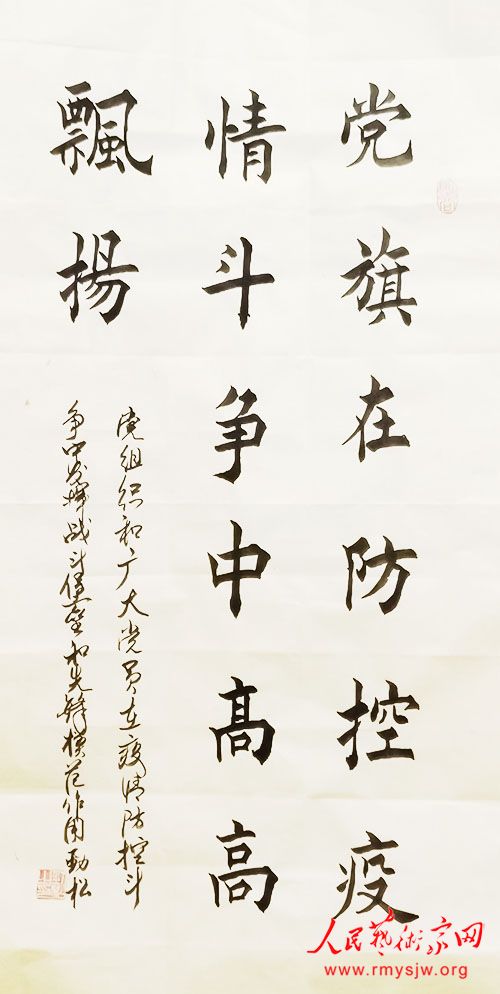 党旗在防控疫
情斗争中高高
飄揚
党组织和广大党员在疫情防控斗
争中发挥战斗堡垒和先锋模范作用 劲松
人民藝術家网
www.rmysjw.org